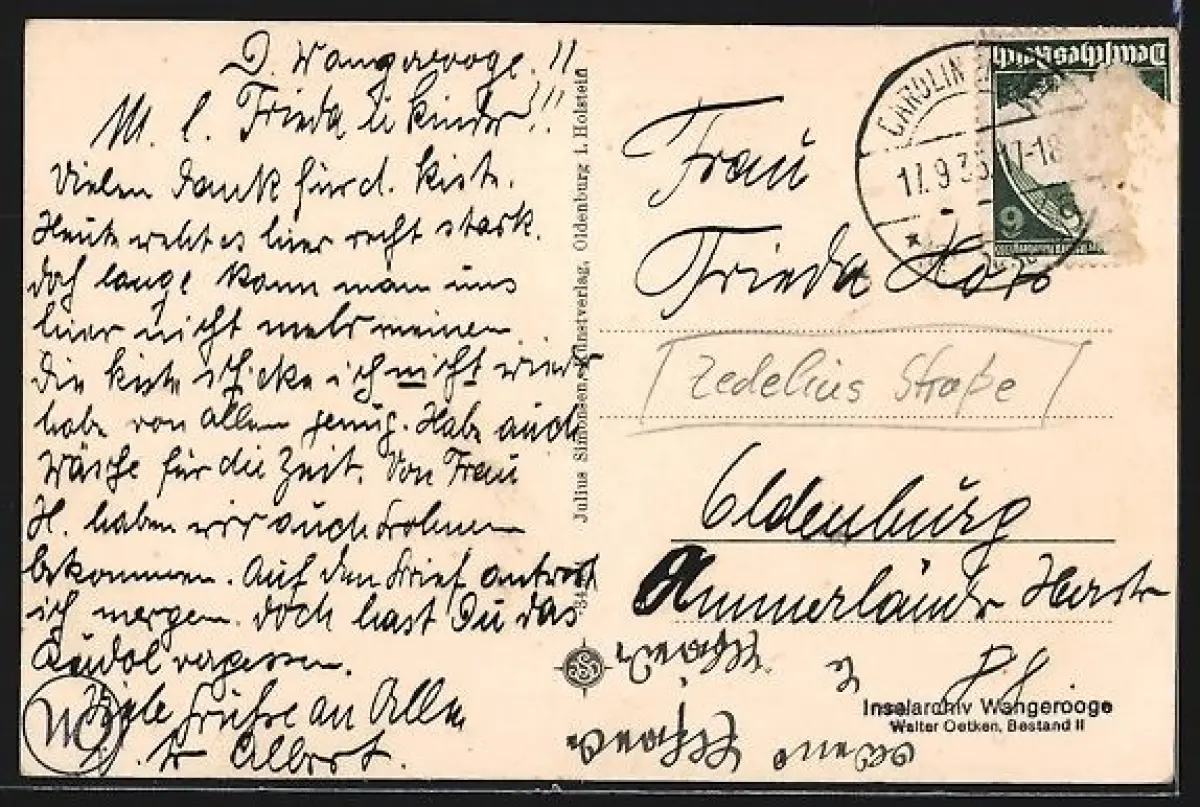 D. Wangerooge.!!
M. l. Frieda u Kinder!!
Vielen Dank für d. Kiste.
Heute weht es hier recht stark.
doch lange kann man uns
hier nicht mehr meinen
Die Kiste schicke ich nicht wieder
habe von Allem genug. Habe auch
Wäsche für die Zeit. Von Frau
H. haben wir auch Bohnen
bekommen. Auf den Brief antwort
ich morgen. Doch hast Du das
vergessen.
Viele Grüße an Alle
Albert.
Julius Simonsen, Kunstverlag, Oldenburg i. Holstein
CAROLIN
17.9.35 17-18
Deutsches Reich
9
Frau
Frieda
Zedelius Straße
Oldenburg
Ammerländer Heerstr
Inselarchiv Wangerooge
Walter Oetken, Bestand II